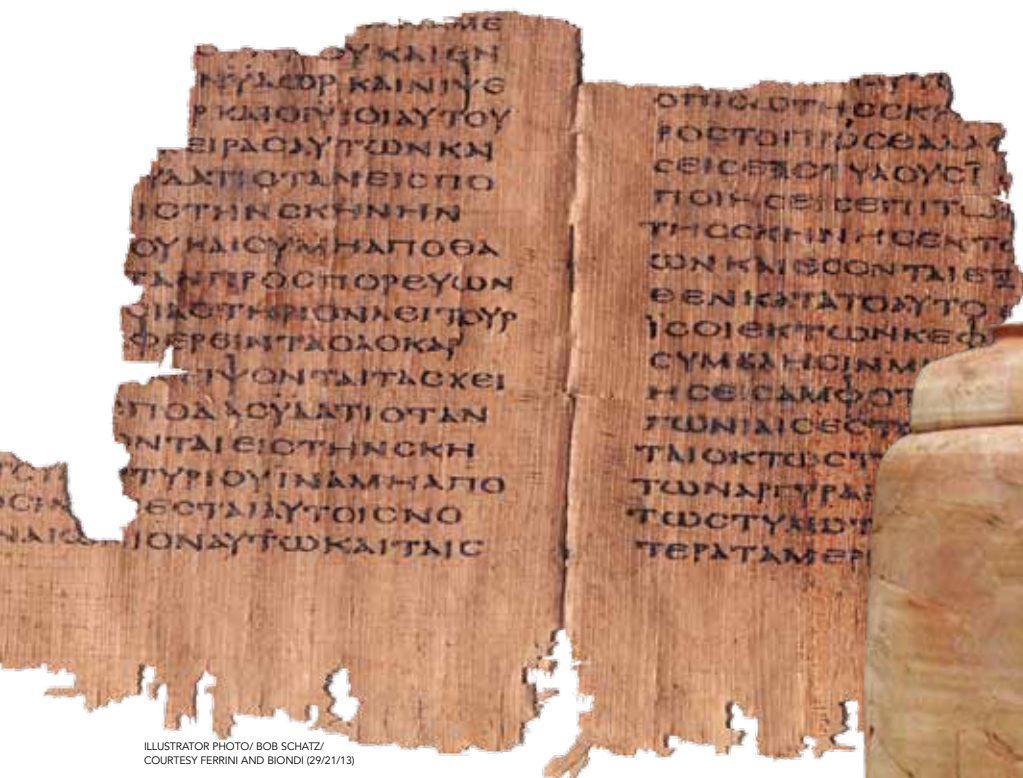 ΜΕ
ΟΥΚΑΙΕΝ
ΝΥΔΩΡΚΑΙΝΙΨΕ
ΡΚΑΙΟΙΥΙΟΙΑΥΤΟΥ
ΕΙΡΑϹΑΥΤΩΝΚΑΙ
ΥΔΑΤΙΟΤΑΝΕΙϹΠΟ
ΙϹΤΗΝϹΚΗΝΗΝ
ΟΥΚΑΙΟΥΜΗΑΠΟΘΑ
ΤΑΝΠΡΟϹΠΟΡΕΥΩΝ
ϹΙΑϹΤΗΡΙΟΝΛΕΙΤΟΥΡ
ΦΕΡΕΙΝΤΑΟΛΟΚΑΥ
ΝΙΨΟΝΤΑΙΤΑϹΧΕΙ
ΠΟΔΑϹΥΔΑΤΙΟΤΑΝ
ΟΝΤΑΙΕΙϹΤΗΝϹΚΗ
ΤΥΡΙΟΥΙΝΑΜΗΑΠΟ
ΕϹΤΑΙΑΥΤΟΙϹΝΟ
ΝΑΙΩΝΙΟΝΑΥΤΩΚΑΙΤΑΙϹ
ΟΠΙϹΩΤΗϹϹΚ
ΡΟϹΤΟΠΡΟϹΘΑΛΑ
ϹΕΙϹΕΞϹΤΥΛΟΥϹ
ΠΟΙΗϹΕΙϹΕΠΙΤΩ
ΤΗϹϹΚΗΝΗϹΕΚΤ
ΩΝΚΑΙΕϹΟΝΤΑΙΕΞ
ΘΕΝΚΑΤΑΤΟΑΥΤΟ
ΙϹΟΙΕΚΤΩΝΚΕΦ
ϹΥΜΒΛΗϹΙΝΜ
ΗϹΕΙϹΑΜΦΟΤ
ΓΩΝΙΑΙϹΕϹΤ
ΤΑΙΟΚΤΩϹΤ
ΤΩΝΑΡΓΥΡΑΙ
ΤΩϹΤΥΛΩ
ΤΕΡΑΤΑΜΕΡ
ILLUSTRATOR PHOTO/ BOB SCHATZ/
COURTESY FERRINI AND BIONDI (29/21/13)